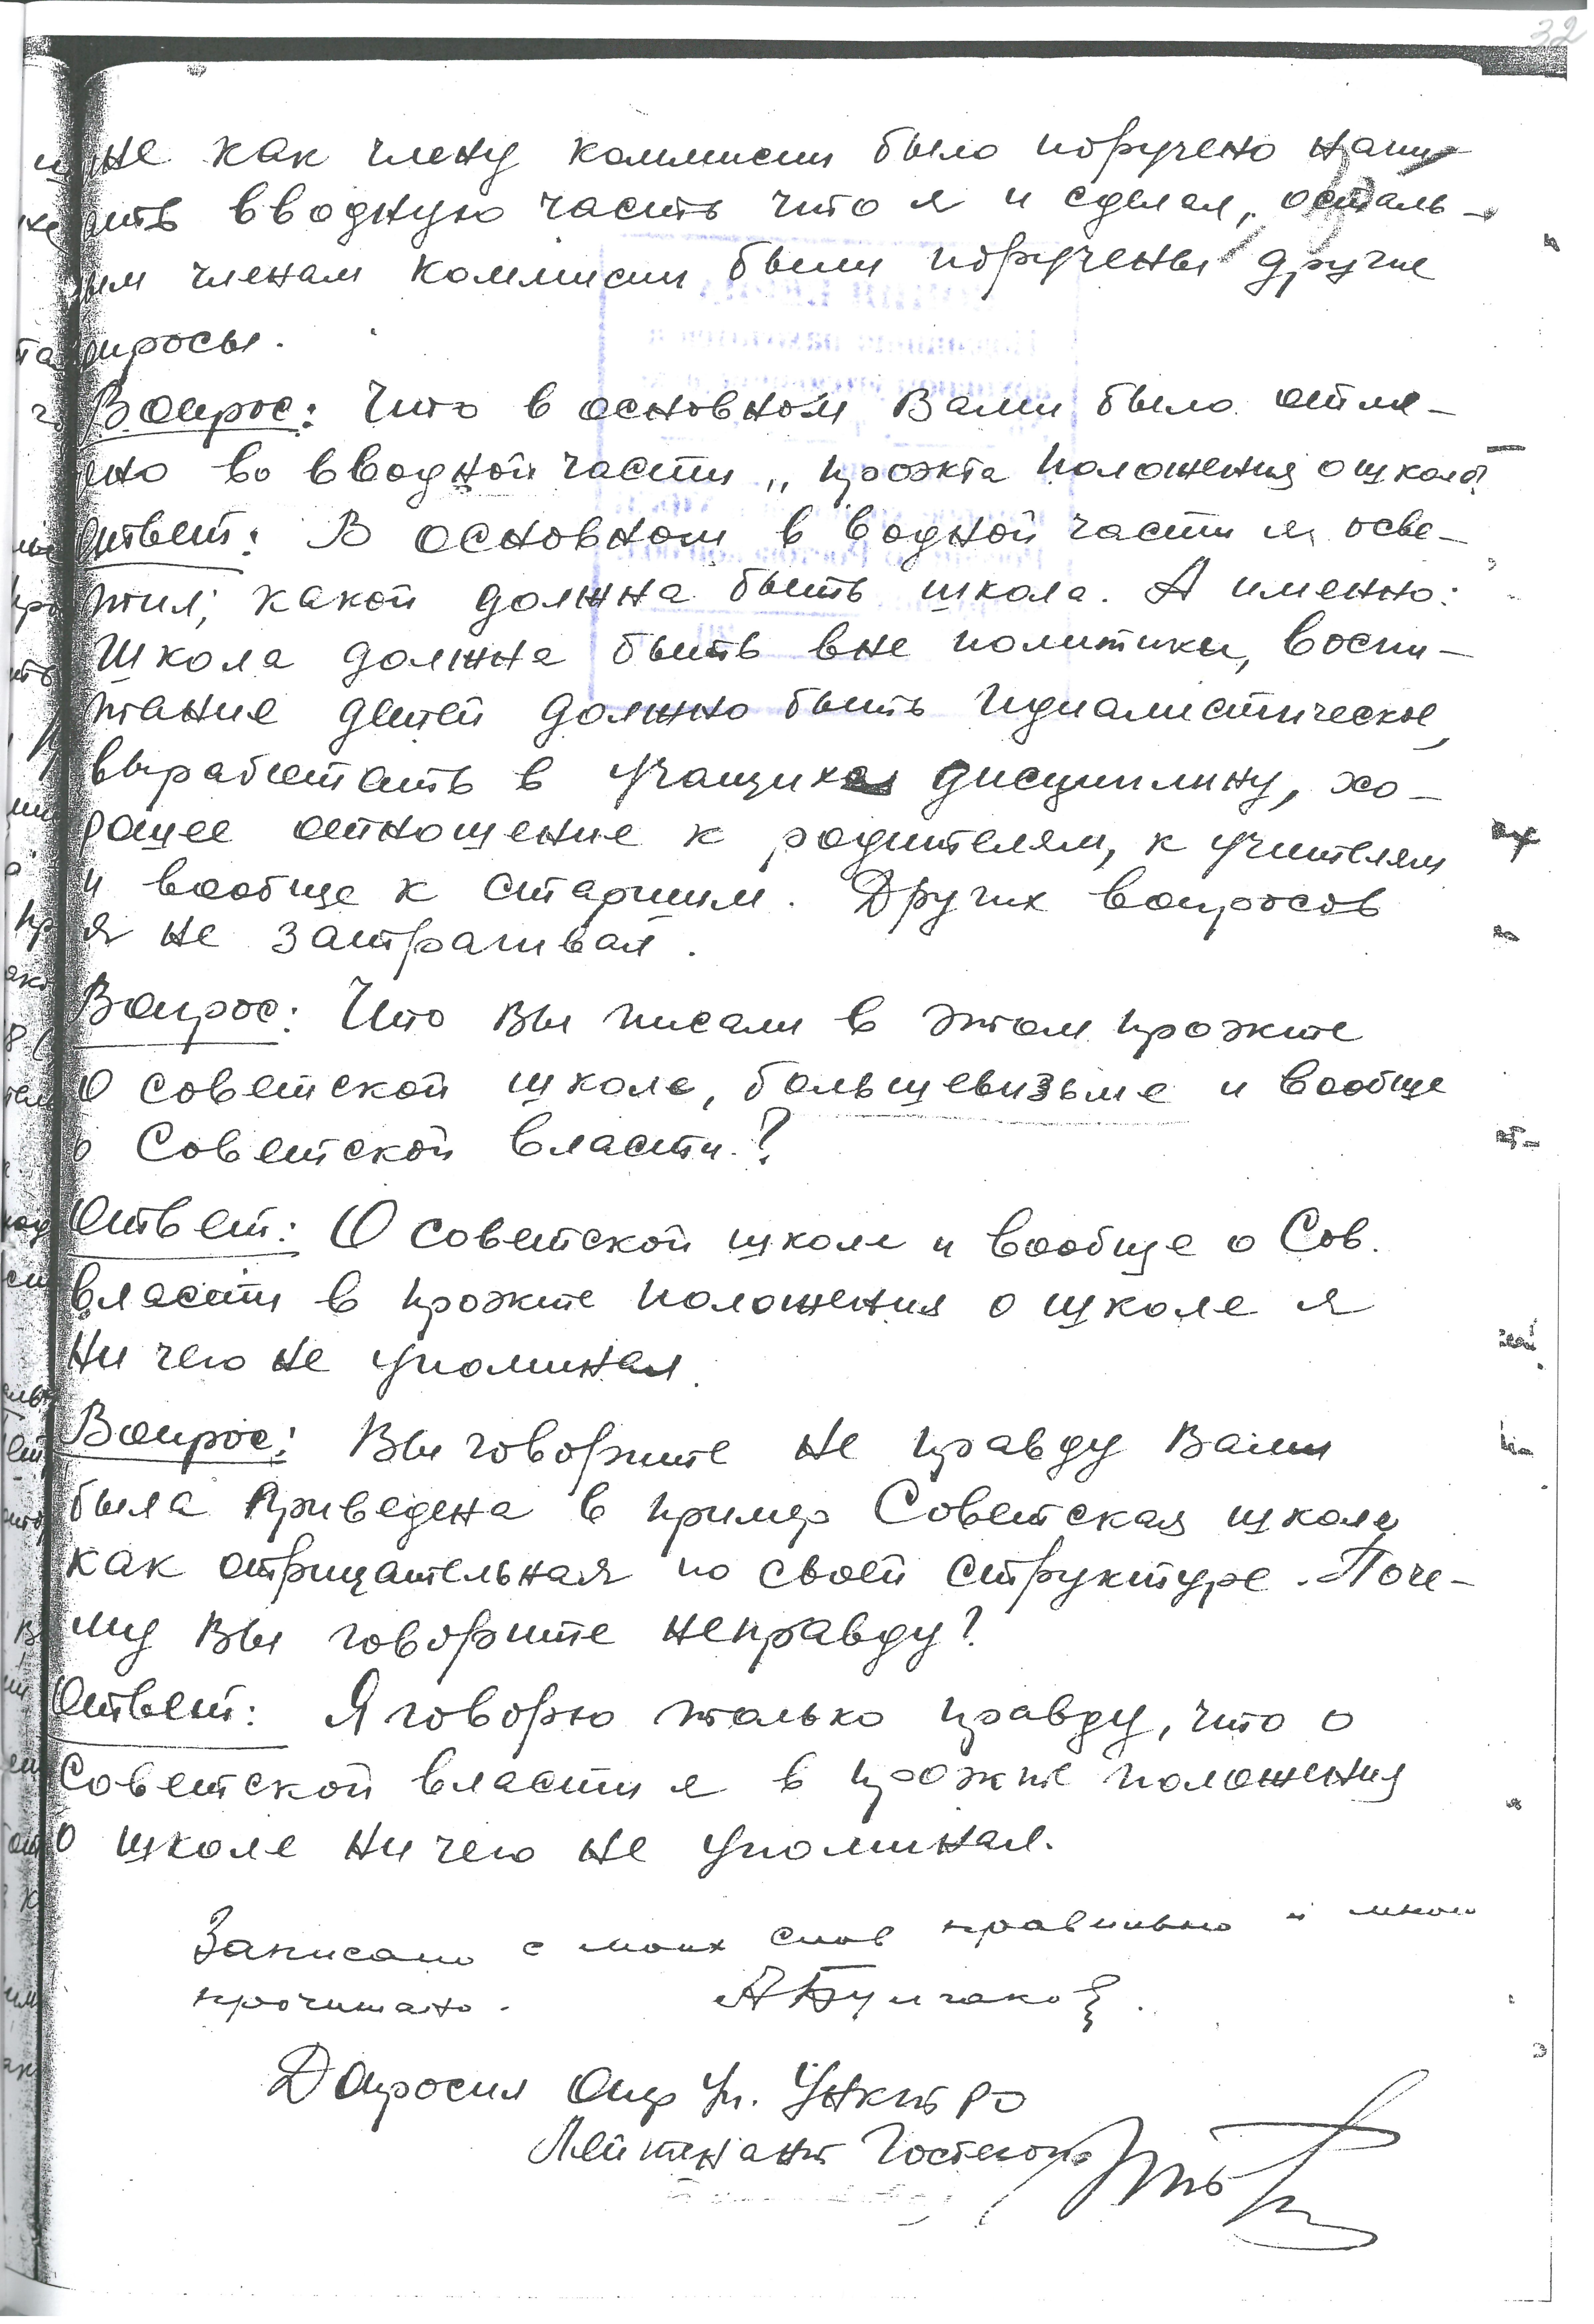 32
мне как члену коммисии было поручено напи-
сать вводную часть что я и сделал, осталь-
ным членам коммисии были поручены другие
вопросы.
Вопрос: Что в основном Вами было отме-
чено во вводной части „ проэкта положения о школе?
Ответ: В основном в водной части я осве-
тил, какой должна быть школа. А именно:
Школа должна быть вне политики, воспи-
тание детей должно быть идиалистическое,
выработать в учащихся дисциплину, хо-
рошее отношение к родителям, к учителям
и вообще к старшим. Других вопросов
я не затрагивал.
Вопрос: Что Вы писали в этом проэкте
о советской школе, большевизьме и вообще
о Советской власти?
Ответ: О советской школе и вообще о Сов.
власти в проэкте положения о школе я
ни чего не упоминал.
Вопрос: Вы говорите не правду Вами
была приведена в пример Советская школа
как отрицательная по своей структуре. Поче-
му Вы говорите неправду?
Ответ: Я говорю только правду, что о
Советской власти я в проэкте положения
о школе ни чего не упоминал.
Записано с моих слов правильно и мною
прочитано. АБулгаков.
Допросил Опер Уп. УНКГБ РО
Лейтенант Госбезоп.